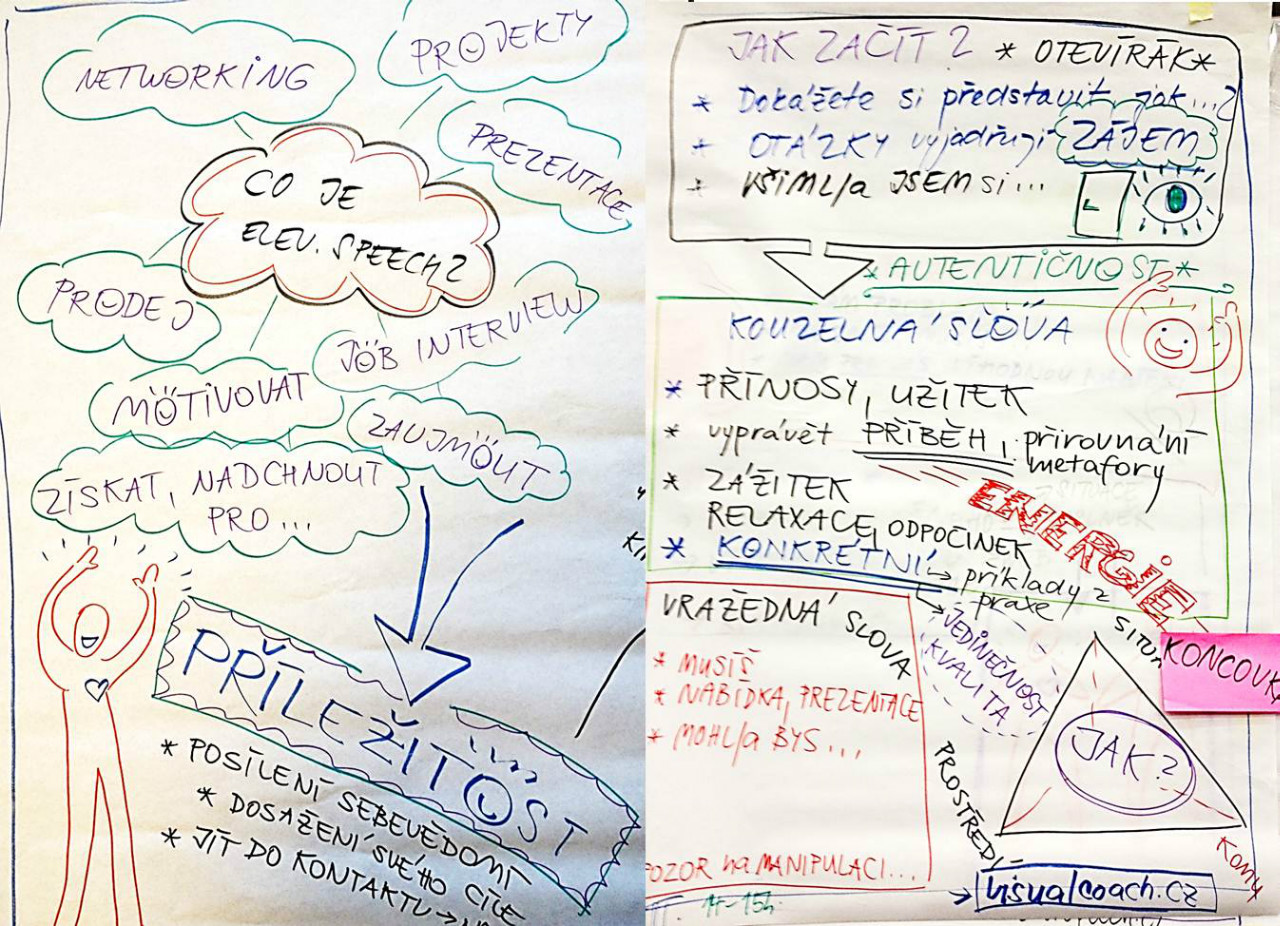 NETWORKING
PROJEKTY
PREZENTACE
CO JE
ELEV. SPEECH?
PRODEJ
JOB INTERVIEW
MOTIVOVAT
ZAUJMOUT
ZÍSKAT, NADCHNOUT
PRO...
PŘÍLEŽITOST
* POSÍLENÍ SEBEVĚDOMÍ
* DOSAŽENÍ SVÉHO CÍLE
* JÍT DO KONTAKTU →
JAK ZAČÍT? * OTEVÍRÁK *
* Dokážete si představit, jak...?
* OTÁZKY vyjadřují ZÁJEM
* VŠIML/a JSEM si...
* AUTENTIČNOST *
KOUZELNÁ SLOVA
* PŘÍNOSY, UŽITEK
* vyprávět PŘÍBĚH, přirovnání
metafory
* ZÁŽITEK
RELAXACE, ODPOČINEK
ENERGIE
* KONKRÉTNÍ → příklady z
praxe
JEDINEČNOST
KVALITA
VRAŽEDNÁ SLOVA
* MUSÍŠ
* NABÍDKA, PREZENTACE
* MOHL/a BYS...
POZOR na MANIPULACI...
KONCOVKA
JAK?
PROSTŘEDÍ
Komu
→ visualcoach.cz